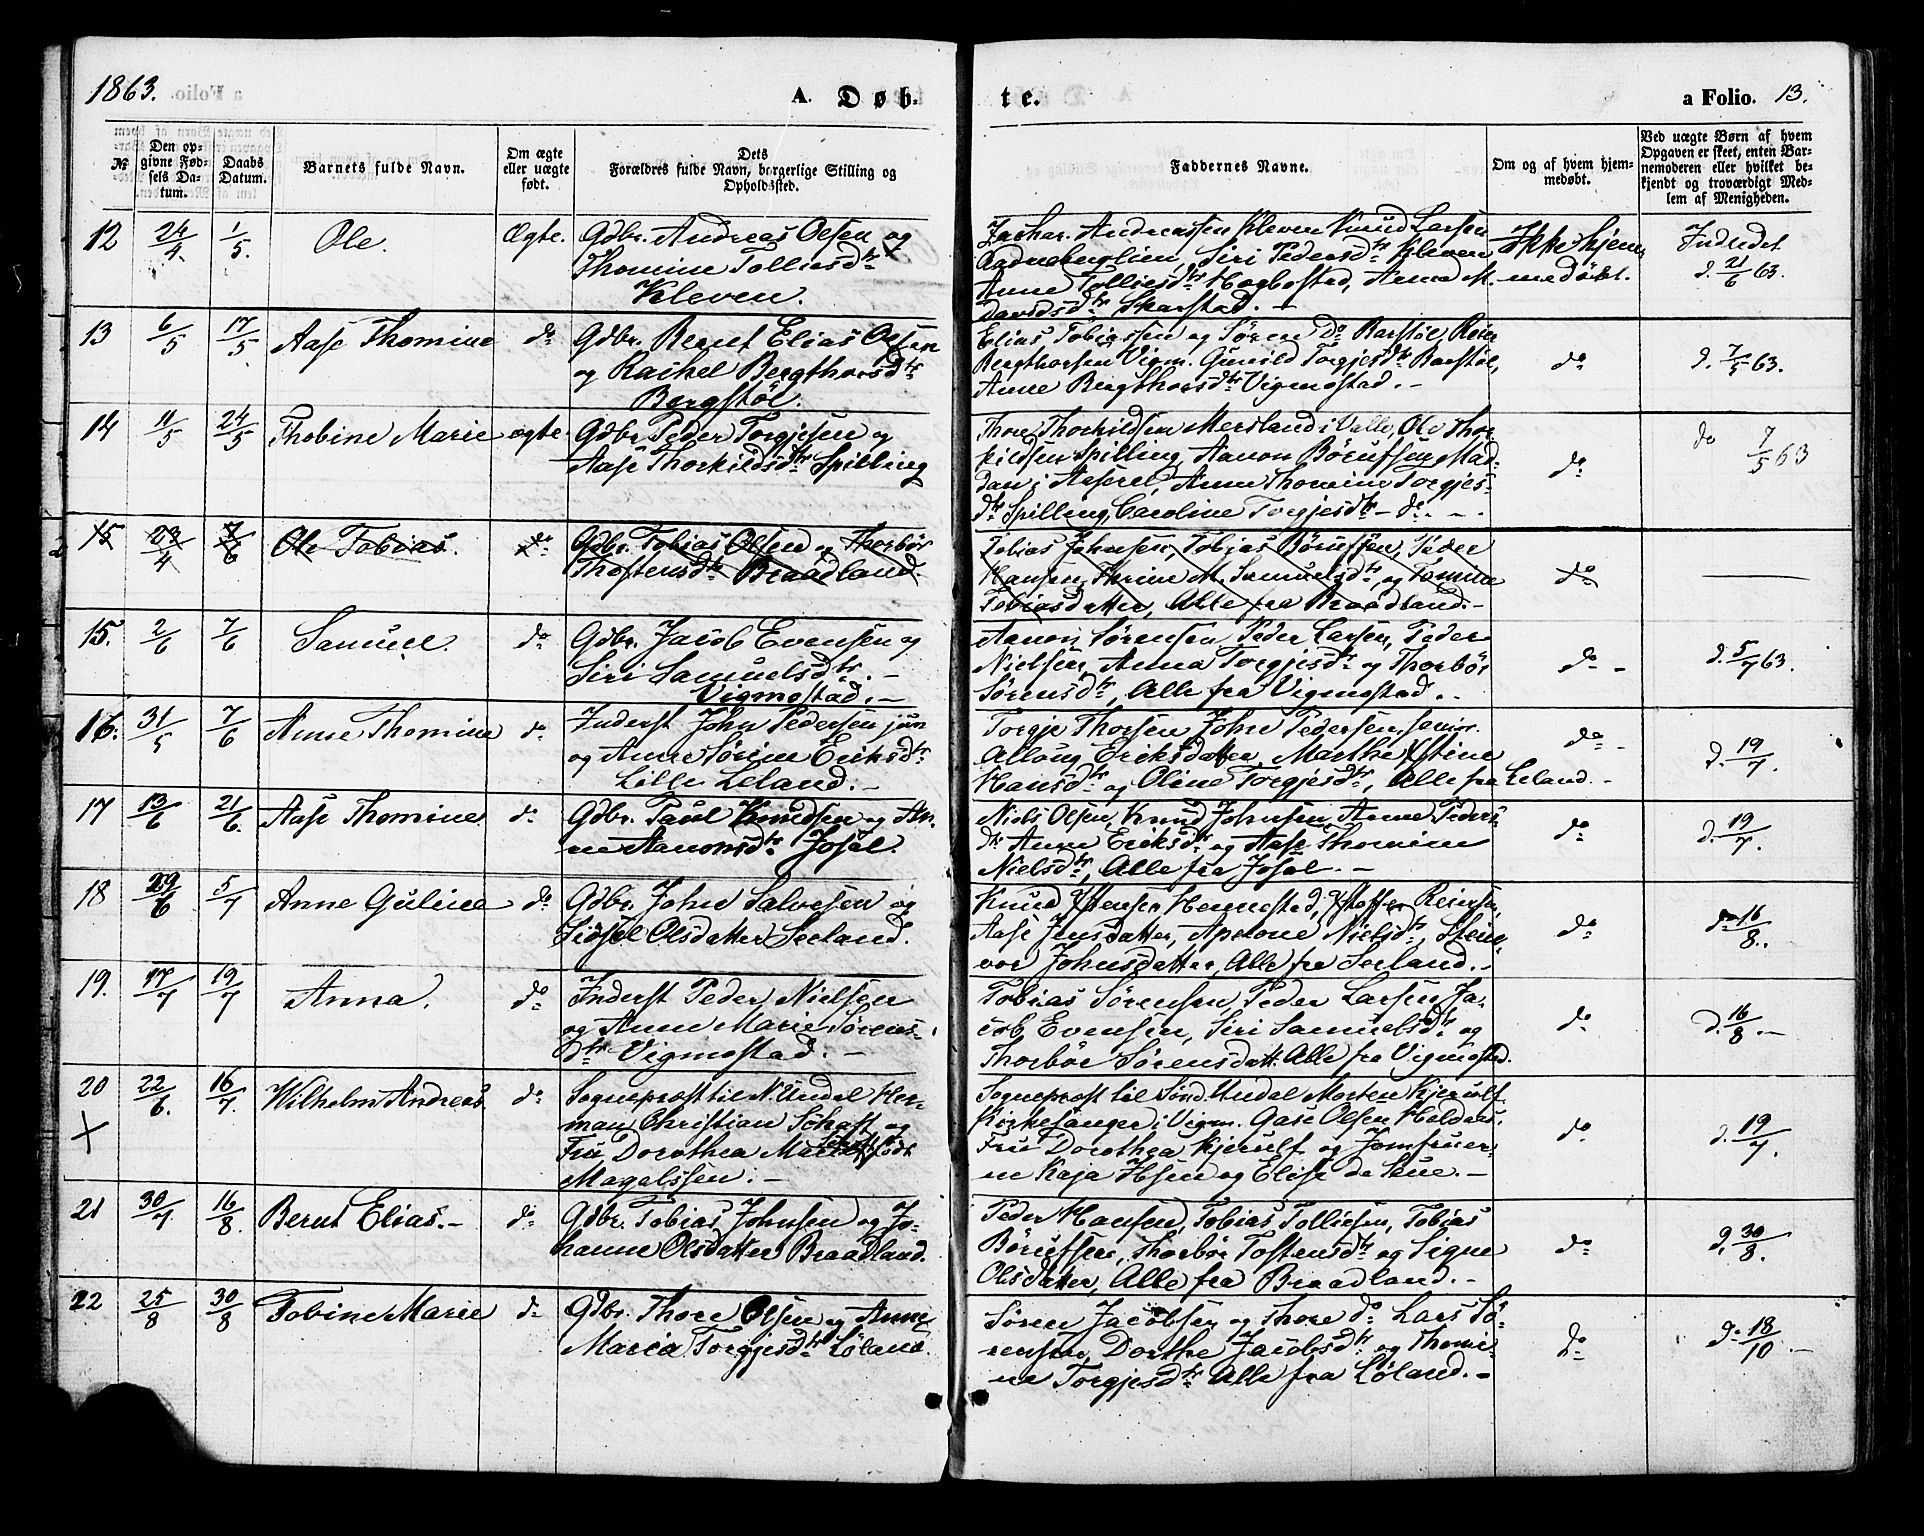 1863.
A. Døb-
te.
a Folio. 13.
№
Den op-
givne Fød-
sels Da-
tum.
Daabs
Datum.
Barnets fulde Navn.
Om ægte
eller uægte
født.
Dets
Forældres fulde Navn, borgerlige Stilling og
Opholdssted.
Faddernes Navne.
Om og af hvem hjem-
medøbt.
Ved uægte Børn af hvem
Opgaven er skeet, enten Bar-
nemoderen eller hvilket be-
kjendt og troværdigt Med-
lem af Menigheden.
12 24/4 1/5. Ole. Ægte.
Gdbr. Andreas Olsen og
Thomine Tolliesdtr
Kleven.
Zachar. Andreassen Kleven Knud Larsen
Siri Pedersdtr Kleven
Anne Tolliesdtr Høgbostad, Anna M.
Davidsdtr Skarstad. -
Ikke hjem-
medøbt.
Indledet
d. 21/6 63.
13 6/5 17/5. Aase Thomine do
Gdbr. Bernt Elias Olsen
og Rachel Bergthorsdtr
Bergstøl.
Elias Tobiassen og Søren do Barstøl, Reier
Bergthorsen Vigm. Gunild Torgjesdtr Barstøl,
Anne Bergthorsdtr Vigmostad. -
do
d. 7/5 63.
14 11/5 24/5 Thobine Marie ægte.
Gdbr. Peder Torgjesen og
Aase Thorkildsdtr Spilling
Thore Thorkildsen Mersland i Valle, Ole Thor
kildsen Spilling, Aanon Børufsen Mad-
dan i Aaserel, Anne Thomine Torgjes-
dtr Spilling, Caroline Torgjesdtr - do. -
do
do 7/5 63
15 23/4 7/6 Ole Tobias. do
Gdbr. Tobias Olsen og Thorbør
Thostensdtr Braadland.
Tobias Johnsen, Tobias Børufsen, Peder
Hansen, Thrine M. Samuelsdtr, og Tomine
Tobiasdatter, Alle fra Braadland. -
do
15. 2/6 7/6 Samuel. do
Gdbr. Jacob Evensen og
Siri Samuelsdtr. -
Vigmostad. -
Aanon Sørensen Peder Larsen, Peder
Nielsen, Anna Torgjesdtr og Thorbør
Sørensdtr, Alle fra Vigmostad. -
do -
d. 5/7 63.
16. 31/5 7/6 Anne Thomine do
Inderst John Pedersen jun
og Anne Sørine Eriksdtr
Lille Leland. -
Torgje Thorsen John Pedersen, senior.
Allong Eriksdatter Marthe Stine
Hansdtr og Oline Torgjesdtr, Alle fra Leland. -
do -
d. 19/7.
17 13/6 21/6. Aase Thomine. do
Gdbr. Paul Knudsen og An-
ne Aanonsdtr Josøl.
Niels Olsen, Knud Johnsen, Anne Peders-
dtr Anne Eriksdtr og Aase Thomine
Nielsdtr, Alle fra Josøl. -
do
d. 19/7.
18 29/6 5/7 Anne Guline do
Gdbr. John Salvesen og
Sidsel Olsdatter Seeland.
Knud Jensen Hennestad, Stoffer Reiersen,
Aase Jensdatter, Apelone Nielsdtr, Stein-
vor Johnsdatter, Alle fra Seeland. -
do
do 16/8.
19. 17/7 19/7 Anna. do
Inderst Peder Nielsen
og Anne Marie Sørens-
dtr Vigmostad. -
Tobias Sørensen, Peder Larsen, Ja-
cob Evensen, Siri Samuelsdtr og
Thorbør Sørensdatt. Alle fra Vigmostad.
do
d. 16/8. -
20 22/6. 16/7. Wilhelm Andreas do
X
Sognepræst til N. Undal Her-
man Christian Schaft og
Fru Dorothea Marie født
Magelssen. -
Sognepræst til Sønd. Undal Morten Kjerulf
Kirkesanger i Vigm. Gase Olsen Heldaas.
Fru Dorothea Kjerulf og Jomfruer-
ne Kaja Ibsen og Elise de Seue. -
do
d. 19/7.
21 30/7 16/8. Bernt Elias. - do
Gdbr. Tobias Johnsen og Jo-
hanne Olsdatter Braadland.
Peder Hansen, Tobias Tolliesen, Tobias
Børufsen, Thorbør Tostensdtr og Signe
Olsdatter, Alle fra Braadland. -
do
d. 30/8.
22 25/8 30/8 Tobine Marie do
Gdbr. Thore Olsen og Anne
Maria Torgjesdtr Løland.
Søren Jacobsen og Thore do Lars Sø-
rensen, Dorthe Jacobsdtr og Thomi-
ne Torgjesdtr Alle fra Løland. -
do
d. 18/10 -